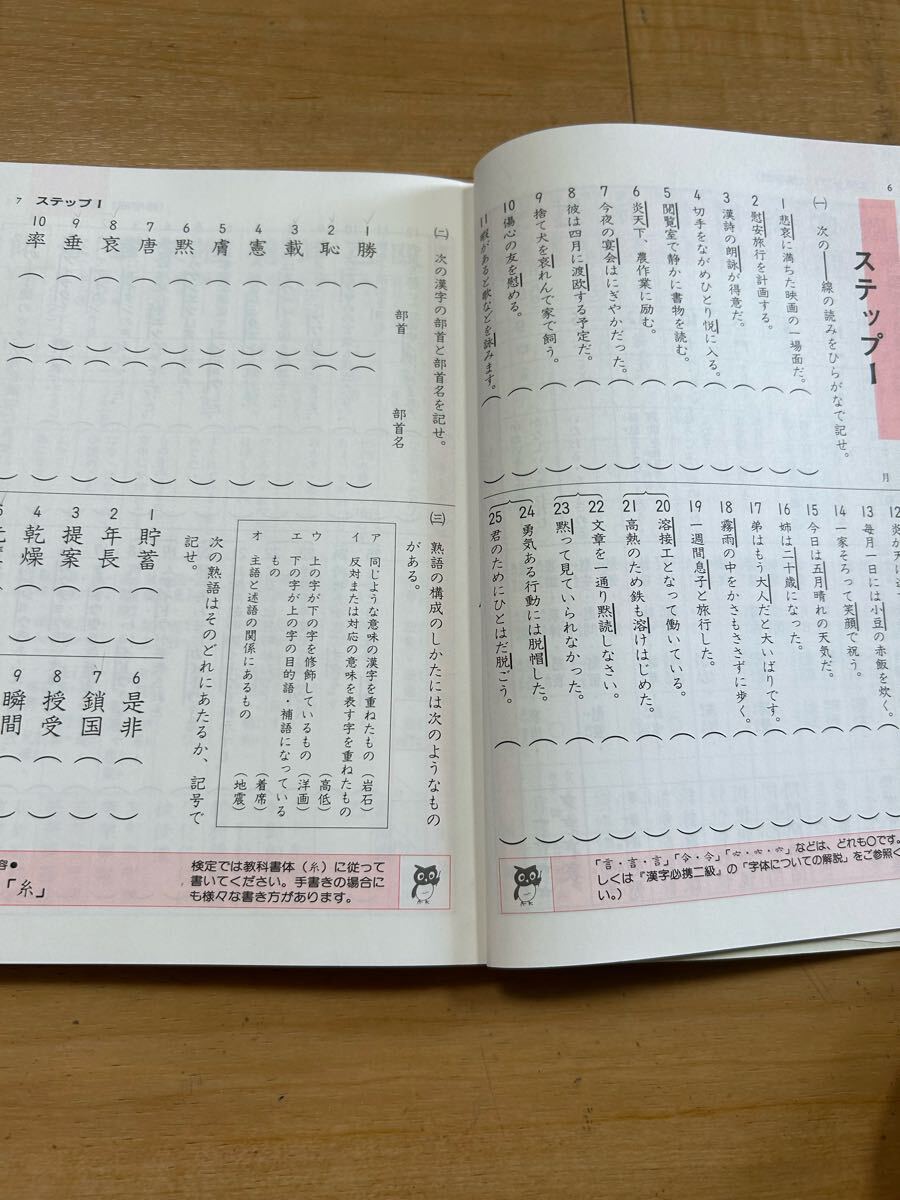 6
ステップ1
月
㈠ 次の――線の読みをひらがなで記せ。
1 悲哀に満ちた映画の一場面だ。( )
2 慰安旅行を計画する。( )
3 漢詩の朗詠が得意だ。( )
4 切手をながめひとり悦に入る。( )
5 閲覧室で静かに書物を読む。( )
6 炎天下、農作業に励む。( )
7 今夜の宴会はにぎやかだった。( )
8 彼は四月に渡欧する予定だ。( )
9 捨て犬を哀れんで家で飼う。( )
10 傷心の友を慰める。( )
11 暇があると歌などを詠みます。( )
12
13 毎月一日には小豆の赤飯を炊く。( )
14 一家そろって笑顔で祝う。( )
15 今日は五月晴れの天気だ。( )
16 姉は二十歳になった。( )
17 弟はもう大人だと大いばりです。( )
18 霧雨の中をかさもささずに歩く。( )
19 一週間息子と旅行した。( )
20 溶接工となって働いている。( )
21 高熱のため鉄も溶けはじめた。( )
22 文章を一通り黙読しなさい。( )
23 黙って見ていられなかった。( )
24 勇気ある行動には脱帽した。( )
25 君のためにひとはだ脱ごう。( )
「言・言・言」「令・令」などは、どれも○です。
しくは『漢字必携二級』の「字体についての解説」をご参照く
い。)
7 ステップ1
㈡ 次の漢字の部首と部首名を記せ。
部首 部首名
1 勝( )( )
2 恥( )( )
3 載( )( )
4 憲( )( )
5 膚( )( )
6 黙( )( )
7 唐( )( )
8 哀( )( )
9 垂( )( )
10 率( )( )
㈢ 熟語の構成のしかたには次のようなもの
がある。
ア 同じような意味の漢字を重ねたもの (岩石)
イ 反対または対応の意味を表す字を重ねたもの
(高低)
ウ 上の字が下の字を修飾しているもの (洋画)
エ 下の字が上の字の目的語・補語になっている
もの (着席)
オ 主語と述語の関係にあるもの (地震)
次の熟語はそのどれにあたるか、記号で
記せ。
1 貯蓄( )
2 年長( )
3 提案( )
4 乾燥( )
5
6 是非( )
7 鎖国( )
8 授受( )
9 瞬間( )
検定では教科書体(糸)に従って
書いてください。手書きの場合に
も様々な書き方があります。
容●
「糸」